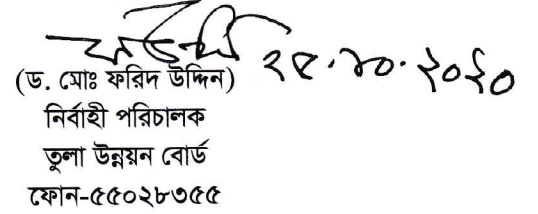 ২৫.১০.২০২০
(ড. মোঃ ফরিদ উদ্দিন)
নির্বাহী পরিচালক
তুলা উন্নয়ন বোর্ড
ফোন-৫৫০২৮৩৫৫